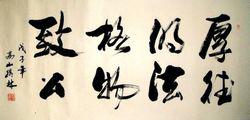 厚德
明法
格物
致公
戊子年